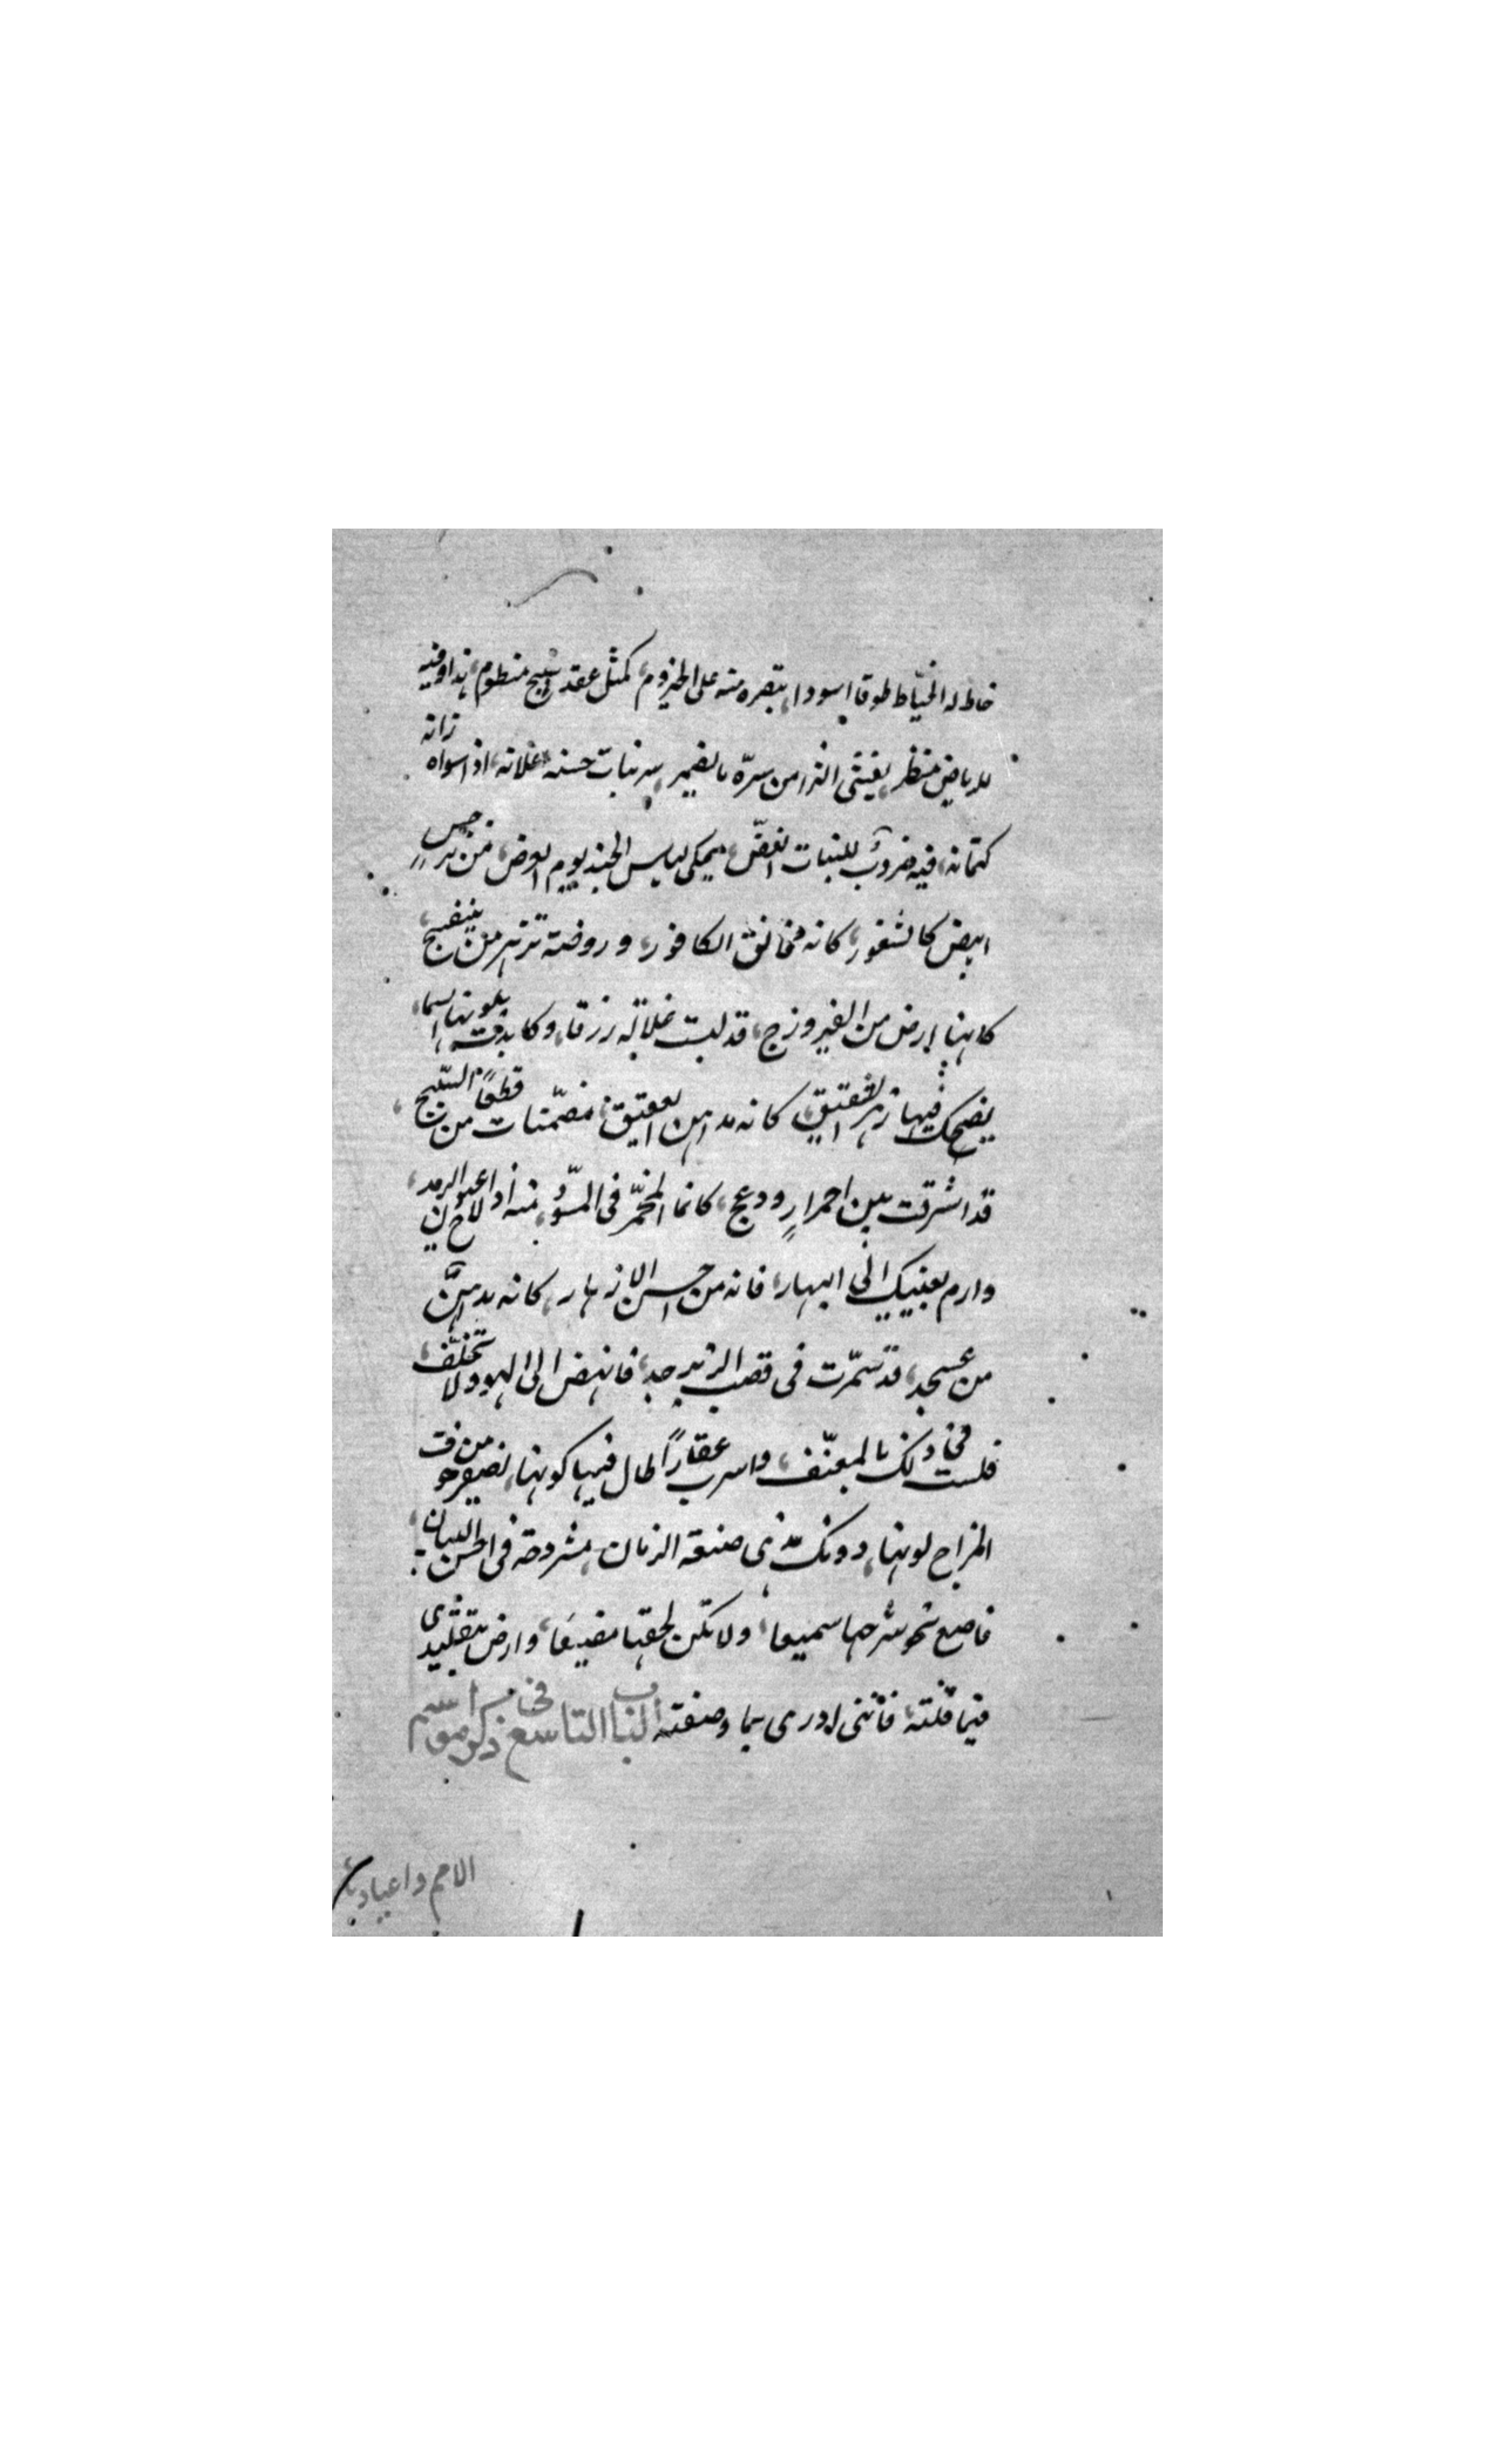 خاط له الخيّاط طوقا اسودا، تبصره منه على الحيزوم، كمثل عقد سبج منظوم، هذا وفيه
للرياض منظر، يفشي الثرا من سرّه ما يضمر، سر نبات حسنه اعلانه، اذا سواه زانه
كتمانه، فيه ضروب للنبات الغضّ، يحكي لباس الجند يوم العرض، من نرجس
ابيض كالثغور، كانه مخانق الكافور، وروضة تزهر من بنفسج
كانها ارض من الفيروزج، قد لبست غلالة زرقا، وكايدت بلونها السما،
يضحك فيها زهر الشقيق، كانه مداهن العقيق، مضمّنات قطعًا من السّبج،
قد اشرقت بين احمرارٍ ودعج، كانما المحمّر في المسوّد، منه اذا لاح عيون الرمد،
وارم بعينيك الى البهار، فانه من احسن الازهار، كانه مداهنٌ
من عسجد، قد سمّرت في قضب الزبرجد، فانهض الى اللهو ولا تخلّف،
فلست في ذلك بالمعنّف، واشرب عقارًا طال فيها كونها، يصفر من خوف
المزاج لونها، دونك هذي صنعة الزمان، مشروحة في احسن البيان،
فاصغ نحو شرحها سميعا، ولا تكن لحقها مضيعا، وارض بتقليدي
فيما قلته، فانني ادرى بما وصفته الباب التاسع في ذكر مواسم
الامم واعيادها